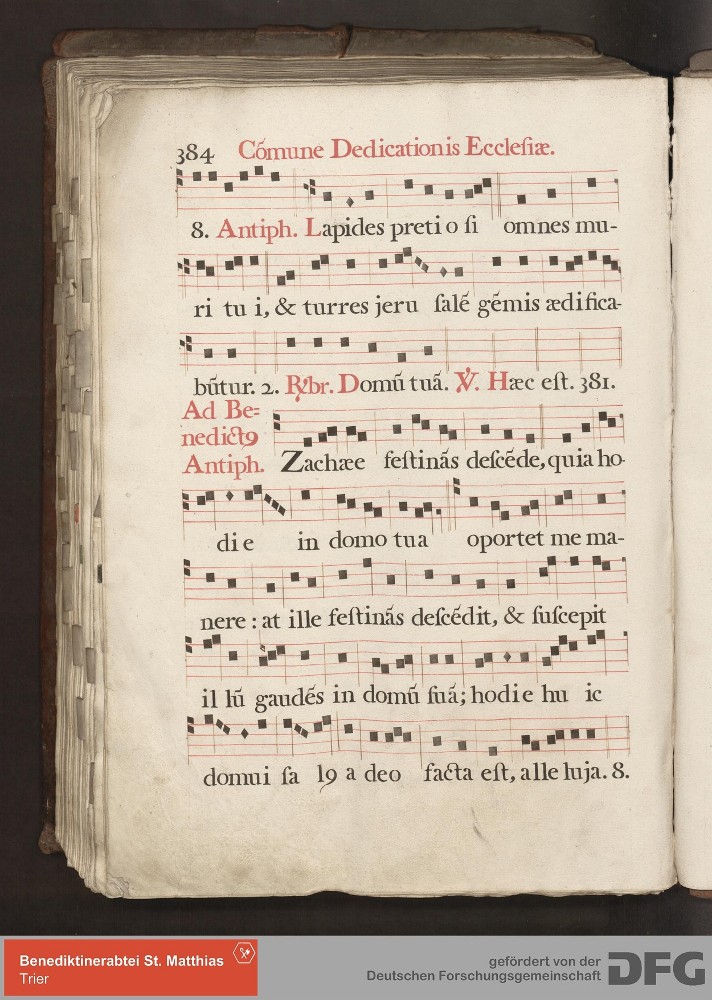 384 Cõmune Dedicationis Ecclesiæ.
8. Antiph. Lapides pretio si omnes mu-
ri tu i, & turres jeru salẽ gẽmis ædifica-
bũtur. 2. ℟br. Domũ tuã. ℣. Hæc est. 381.
Ad Be=
nedictꝯ
Antiph. Zachæe festinãs descẽde, quia ho-
di e in domo tua oportet me ma-
nere : at ille festinãs descẽdit, & suscepit
il lũ gaudẽs in domũ suã; hodie hu ic
domui sa lꝯ a deo facta est, alle luja. 8.
Benediktinerabtei St. Matthias
Trier
gefördert von der
Deutschen Forschungsgemeinschaft
DFG